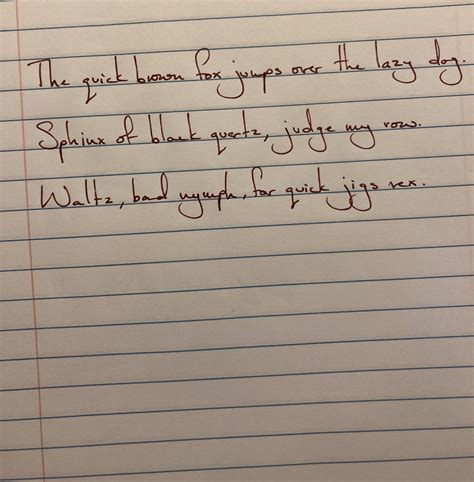 The quick brown fox jumps over the lazy dog.
Sphinx of black quartz, judge my vow.
Waltz, bad nymph, for quick jigs vex.